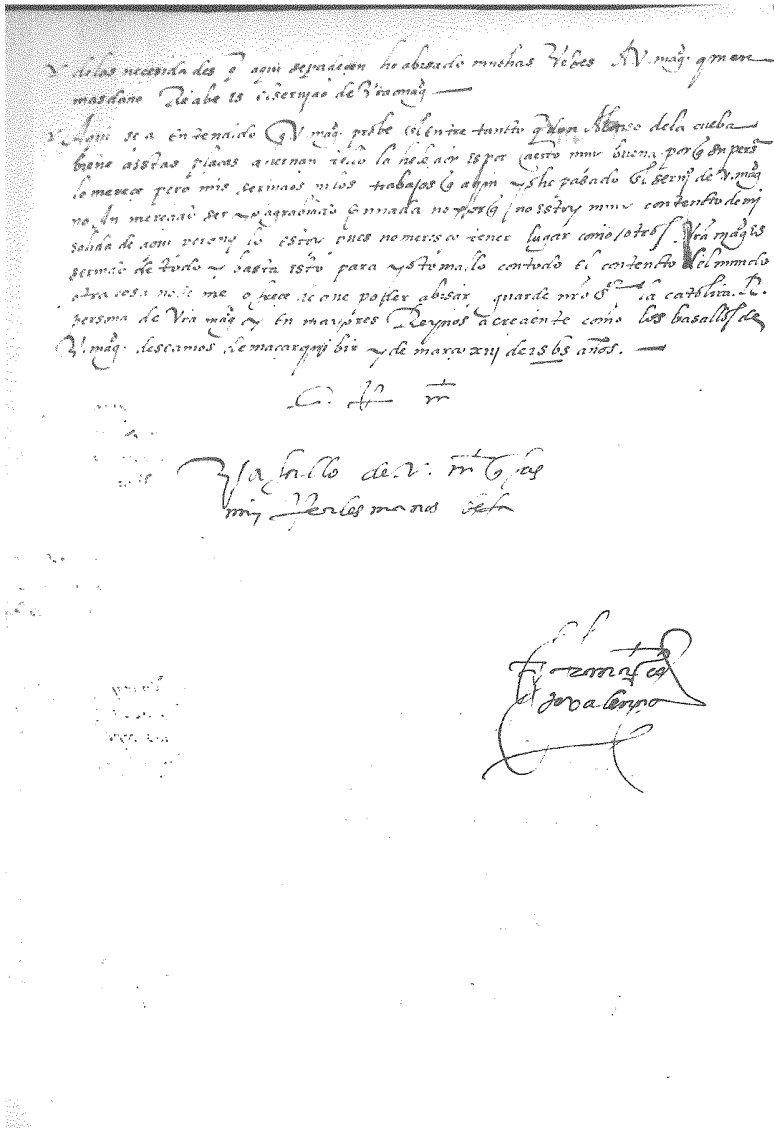 Y de las necesidades q̄ aqui se padeçen he abisado muchas vezes A V. mag. q
mas daño Reçibe es el seruiçio de Vra mag
Y Aqui se a entendido q̄ V. mag. probe el entre tanto q̄ don Alonso de la cueba
biene a estas plaças a hernan tello la helecion es por çierto muy buena porq̄ su persa
lo mereçe pero mis seruiçios ni los trabajos q̄ aqui he pasado en serui de V. mag
no an mereçido ser yo agrabiado q̄ nnada no porq̄ no estoy muy contento de mi
salida de aqui lo estoy pues no meresco tener lugar como otros. Vra mag es
seruido de todo y basta esto para yo tomallo con todo el contento del mundo
otra cosa no se me ofreçe de que poder abisar guarde nro Sr la catolica R.
persona de Vra mag y en mayores Reynos acreçiente como los basallos de
V. mag. deseamos de maçarquibir y de março xiij de 1565 años.
C. R. m
Vasallo de V. m q̄ sus
muy Reales manos besa